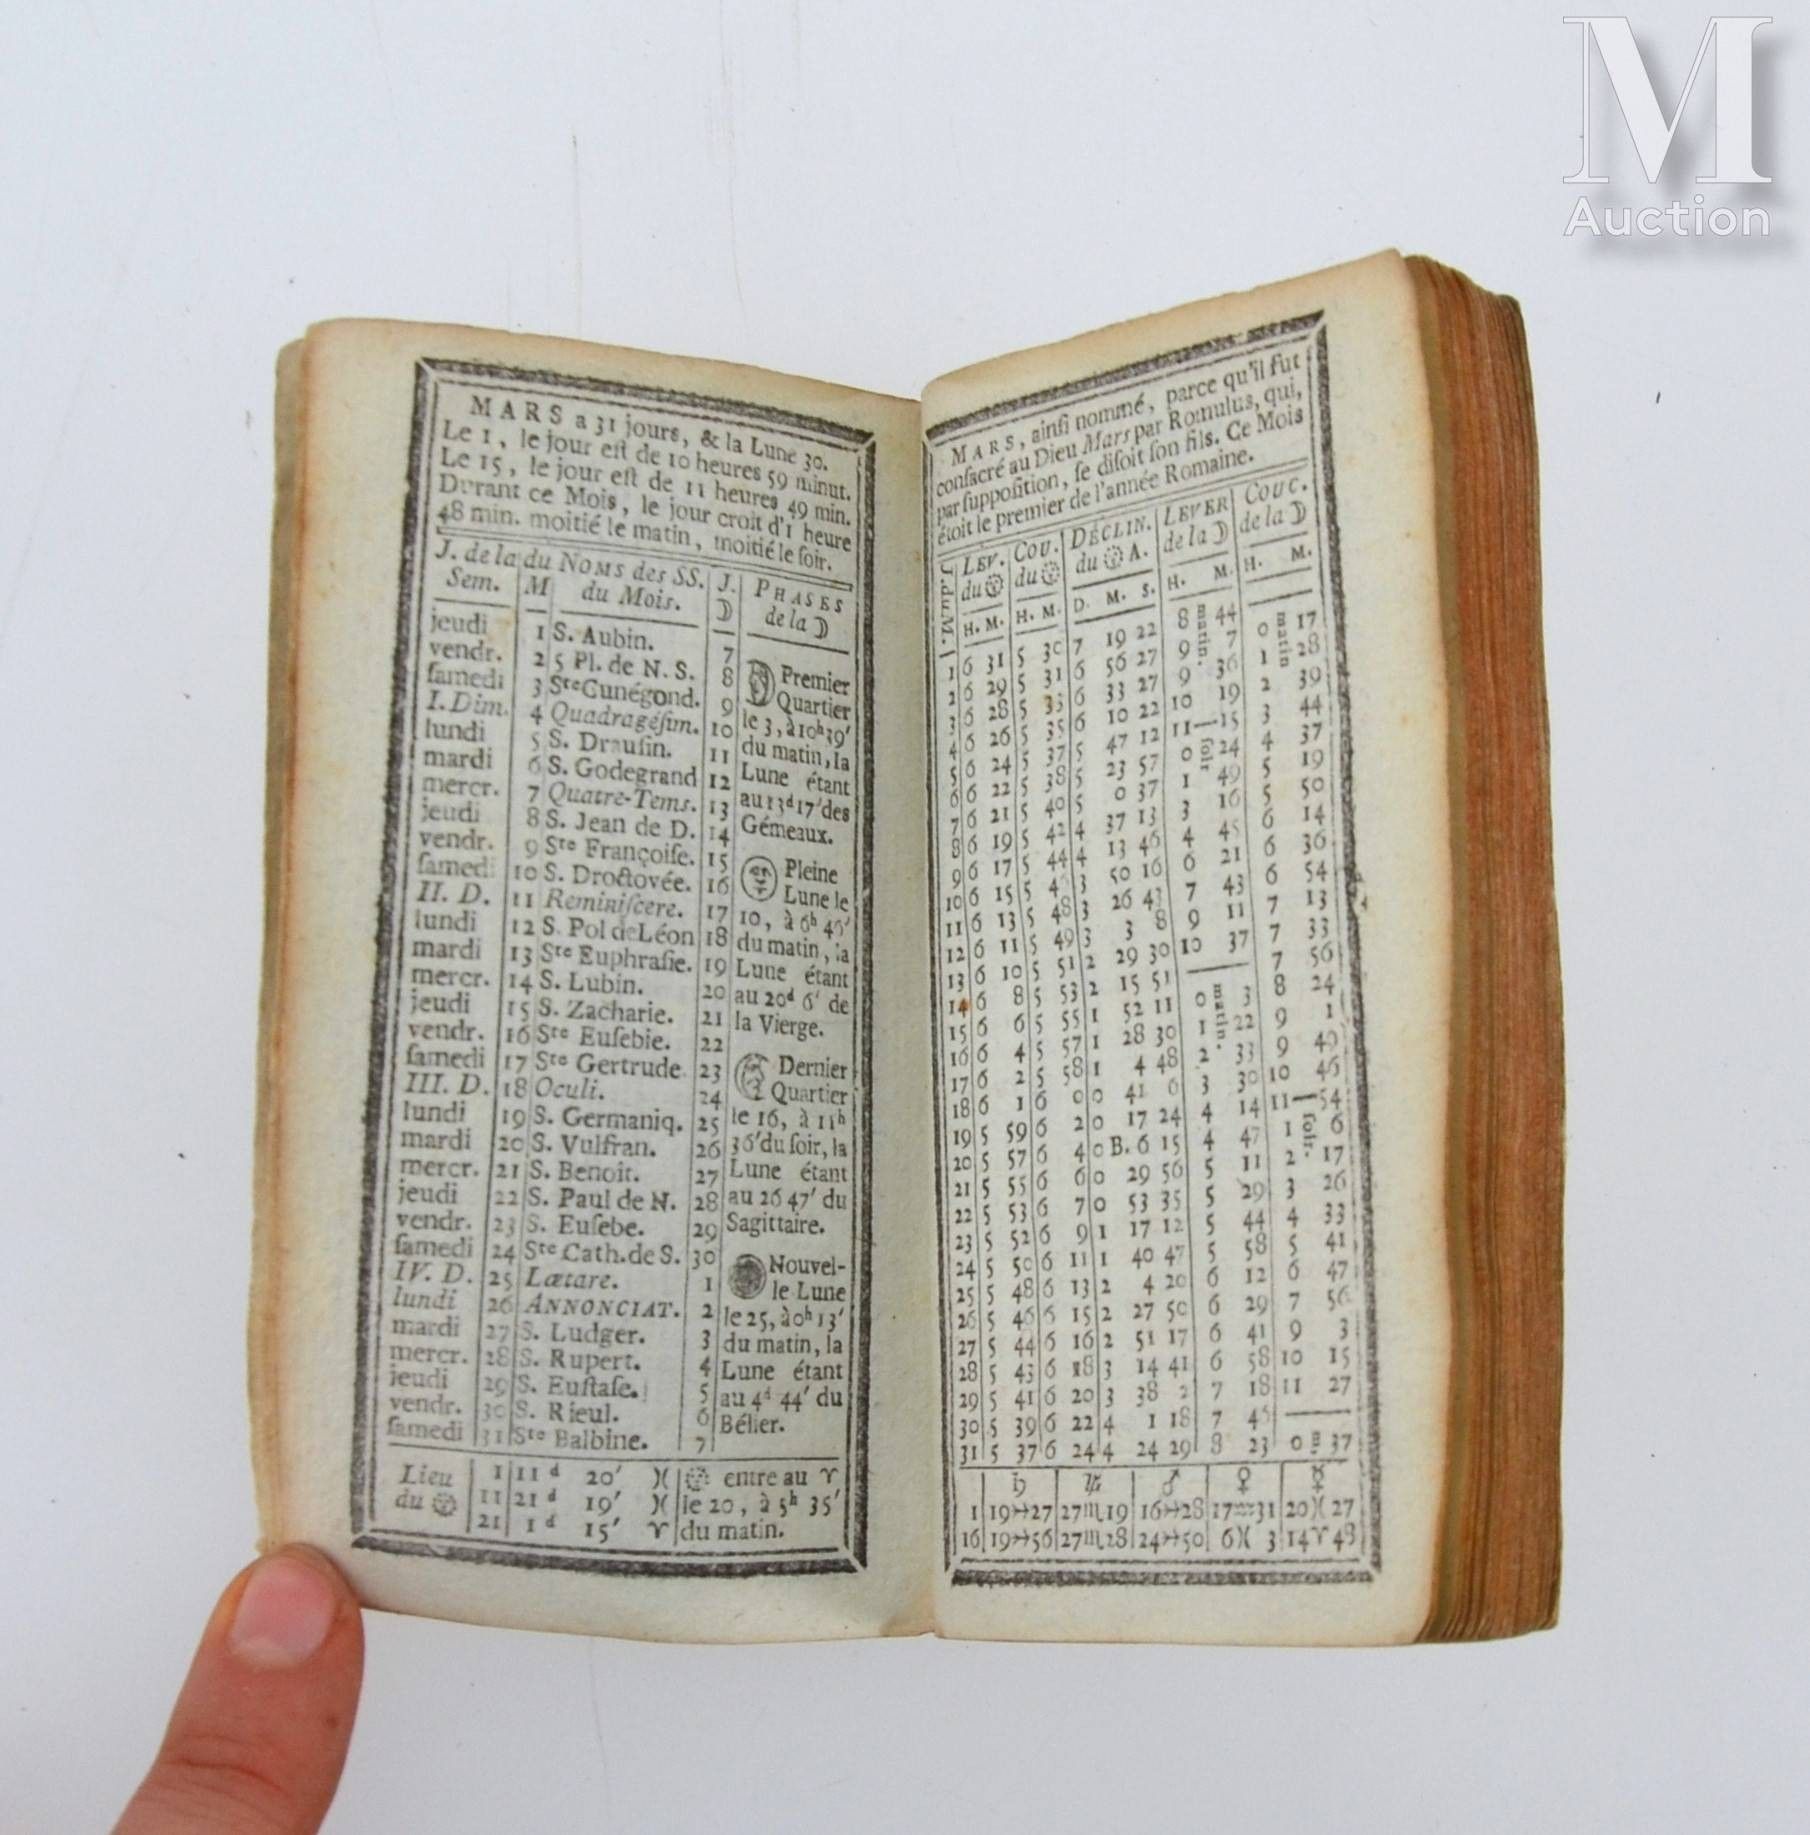 M
Auction
MARS a 31 jours, & la Lune 30.
Le 1, le jour eſt de 10 heures 59 minut.
Le 15, le jour eſt de 11 heures 49 min.
Durant ce Mois, le jour croit d'1 heure
48 min. moitié le matin, moitié le ſoir.
J. de la Sem. | du M | NOMS des SS. du Mois. | J. ☽ | PHASES de la ☽
jeudi 1 S. Aubin. 7
vendr. 2 5 Pl. de N. S. 8
ſamedi 3 Ste Cunégond. 9
I. Dim. 4 Quadrageſim. 10
lundi 5 S. Drauſin. 11
mardi 6 S. Godegrand 12
mercr. 7 Quatre-Tems. 13
jeudi 8 S. Jean de D. 14
vendr. 9 Ste Françoiſe. 15
ſamedi 10 S. Droctovée. 16
II. D. 11 Reminiſcere. 17
lundi 12 S. Pol de Léon 18
mardi 13 Ste Euphraſie. 19
mercr. 14 S. Lubin. 20
jeudi 15 S. Zacharie. 21
vendr. 16 Ste Euſebie. 22
ſamedi 17 Ste Gertrude 23
III. D. 18 Oculi. 24
lundi 19 S. Germaniq. 25
mardi 20 S. Vulfran. 26
mercr. 21 S. Benoit. 27
jeudi 22 S. Paul de N. 28
vendr. 23 S. Euſebe. 29
ſamedi 24 Ste Cath. de S. 30
IV. D. 25 Lætare. 1
lundi 26 ANNONCIAT. 2
mardi 27 S. Ludger. 3
mercr. 28 S. Rupert. 4
jeudi 29 S. Euſtaſe. 5
vendr. 30 S. Rieul. 6
ſamedi 31 Ste Balbine. 7
Premier
Quartier
le 3, à 10h 39'
du matin, la
Lune étant
au 13d 17' des
Gémeaux.
Pleine
Lune le
10, à 6h 46'
du matin, la
Lune étant
au 20d 6' de
la Vierge.
Dernier
Quartier
le 16, à 11h
36' du ſoir, la
Lune étant
au 26 47' du
Sagittaire.
Nouvel-
le Lune
le 25, à 0h 13'
du matin, la
Lune étant
au 4d 44' du
Bélier.
Lieu du ☉
1 11d 20' ♓
11 21d 19' ♓
21 1d 15' ♈
☉ entre au ♈
le 20, à 5h 35'
du matin.
MARS, ainſi nommé, parce qu'il fut
conſacré au Dieu Mars par Romulus, qui,
par ſuppoſition, ſe diſoit ſon fils. Ce Mois
étoit le premier de l'année Romaine.
J. du M. | LEV. du ☉ | COU. du ☉ | DÉCLIN. du ☉ A. | LEVER de la ☽ | COUC. de la ☽
H. M. | H. M. | D. M. S. | H. M. | H. M.
1 6 31 5 30 7 19 22 8 matin. 44 0 matin 17
2 6 29 5 31 6 56 27 9 7 1 28
3 6 28 5 33 6 33 27 9 36 2 39
4 6 26 5 35 6 10 22 10 19 3 44
5 6 24 5 37 5 47 12 11 15 4 37
6 6 22 5 38 5 23 57 0 ſoir 24 5 19
7 6 21 5 40 5 0 37 1 49 5 50
8 6 19 5 42 4 37 13 3 16 6 14
9 6 17 5 44 4 13 46 4 45 6 36
10 6 15 5 3 50 16 6 21 6 54
11 6 13 5 48 3 26 43 7 43 7 13
12 6 11 5 49 3 3 8 9 11 7 33
13 6 10 5 51 2 29 30 10 37 7 56
14 6 8 5 53 2 15 51 8 24
15 6 6 5 55 1 52 11 0 matin. 3 9 1
16 6 4 5 57 1 28 30 1 22 9 49
17 6 2 5 58 1 4 48 2 33 10 46
18 6 1 6 0 0 41 6 3 30 11 54
19 5 59 6 2 0 17 24 4 14 1 ſoir. 6
20 5 57 6 4 0 B. 6 15 4 47 2 17
21 5 55 6 6 0 29 56 5 11 3 26
22 5 53 6 7 0 53 35 5 29 4 33
23 5 52 6 9 1 17 12 5 44 5 41
24 5 50 6 11 1 40 47 5 58 6 47
25 5 48 6 13 2 4 20 6 12 7 56
26 5 46 6 15 2 27 50 6 29 9 3
27 5 44 6 16 2 51 17 6 41 10 15
28 5 43 6 18 3 14 41 6 58 11 27
29 5 41 6 20 3 38 2 7 18
30 5 39 6 22 4 1 18 7 45
31 5 37 6 24 4 24 29 8 23 0 m 37
♄ ♃ ♂ ♀ ☿
1 19 ♐ 27 27 ♏ 19 16 ♐ 28 17 ♒ 31 20 ♓ 27
16 19 ♐ 56 27 ♏ 28 24 ♐ 50 6 ♓ 3 14 ♈ 48